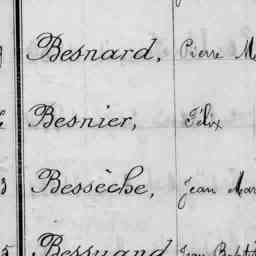 Besnard, Pierre
Besnier, Félix
Bessèche, Jean Mar
Bessuand Jean Bapti